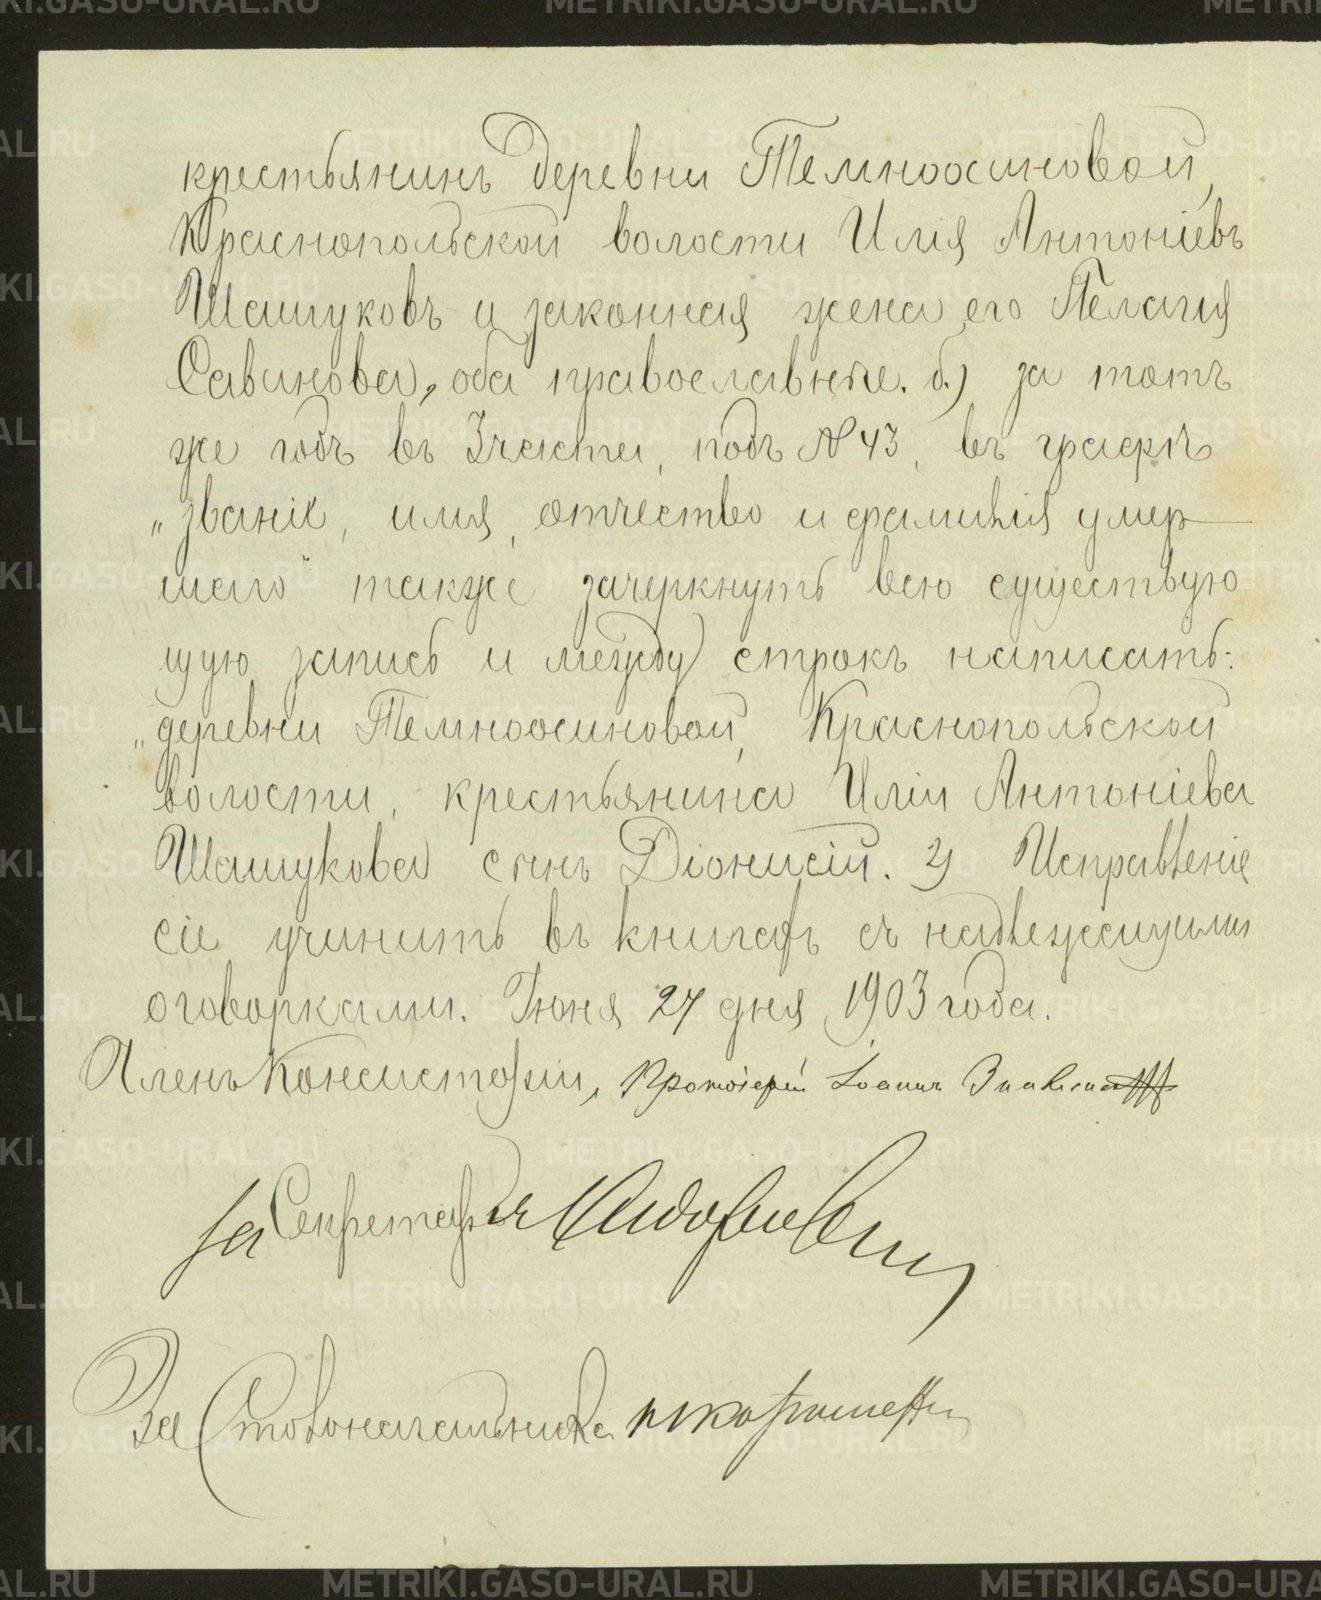 крестьянинъ деревни Темноосиновой,
Краснопольской волости Илія Антоніевъ
Шашуковъ и законная жена его Пелагія
Савинова, оба православные. б.) за тотъ
же годъ въ 3 части, подъ № 43, въ графѣ
„званіе, имя, отчество и фамилія умер
шаго" также зачеркнуть всю существую
щую запись и между строкъ написать:
„деревни Темноосиновой, Краснопольской
волости, крестьянина Иліи Антоніева
Шашукова сынъ Діонисій. 2) Исправленіе
сіе учинить въ книгахъ съ надлежащими
оговорками. Іюня 27 дня 1903 года.
Членъ Консисторіи, Протоіерей Іоаннъ
За Секретаря
За Столоначальника
METRIKI.GASO-URAL.RU